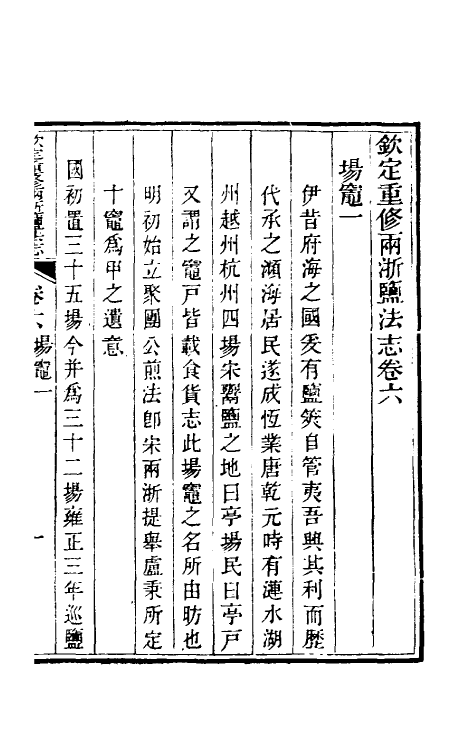 欽定重修兩浙鹽法志卷六
場竈一
伊昔府海之國爰有鹽筴自管夷吾興其利而歷
代承之瀕海居民遂成恆業唐乾元時有漣水湖
州越州杭州四場宋鬻鹽之地曰亭場民曰亭戸
又謂之竈戸皆載食貨志此場竈之名所由昉也
明初始立聚團公煎法卽宋兩浙提舉盧秉所定
十竈爲甲之遺意
國初置三十五場今并爲三十二場雍正三年巡鹽
欽定重修兩浙鹽法志
卷六場竈一
一